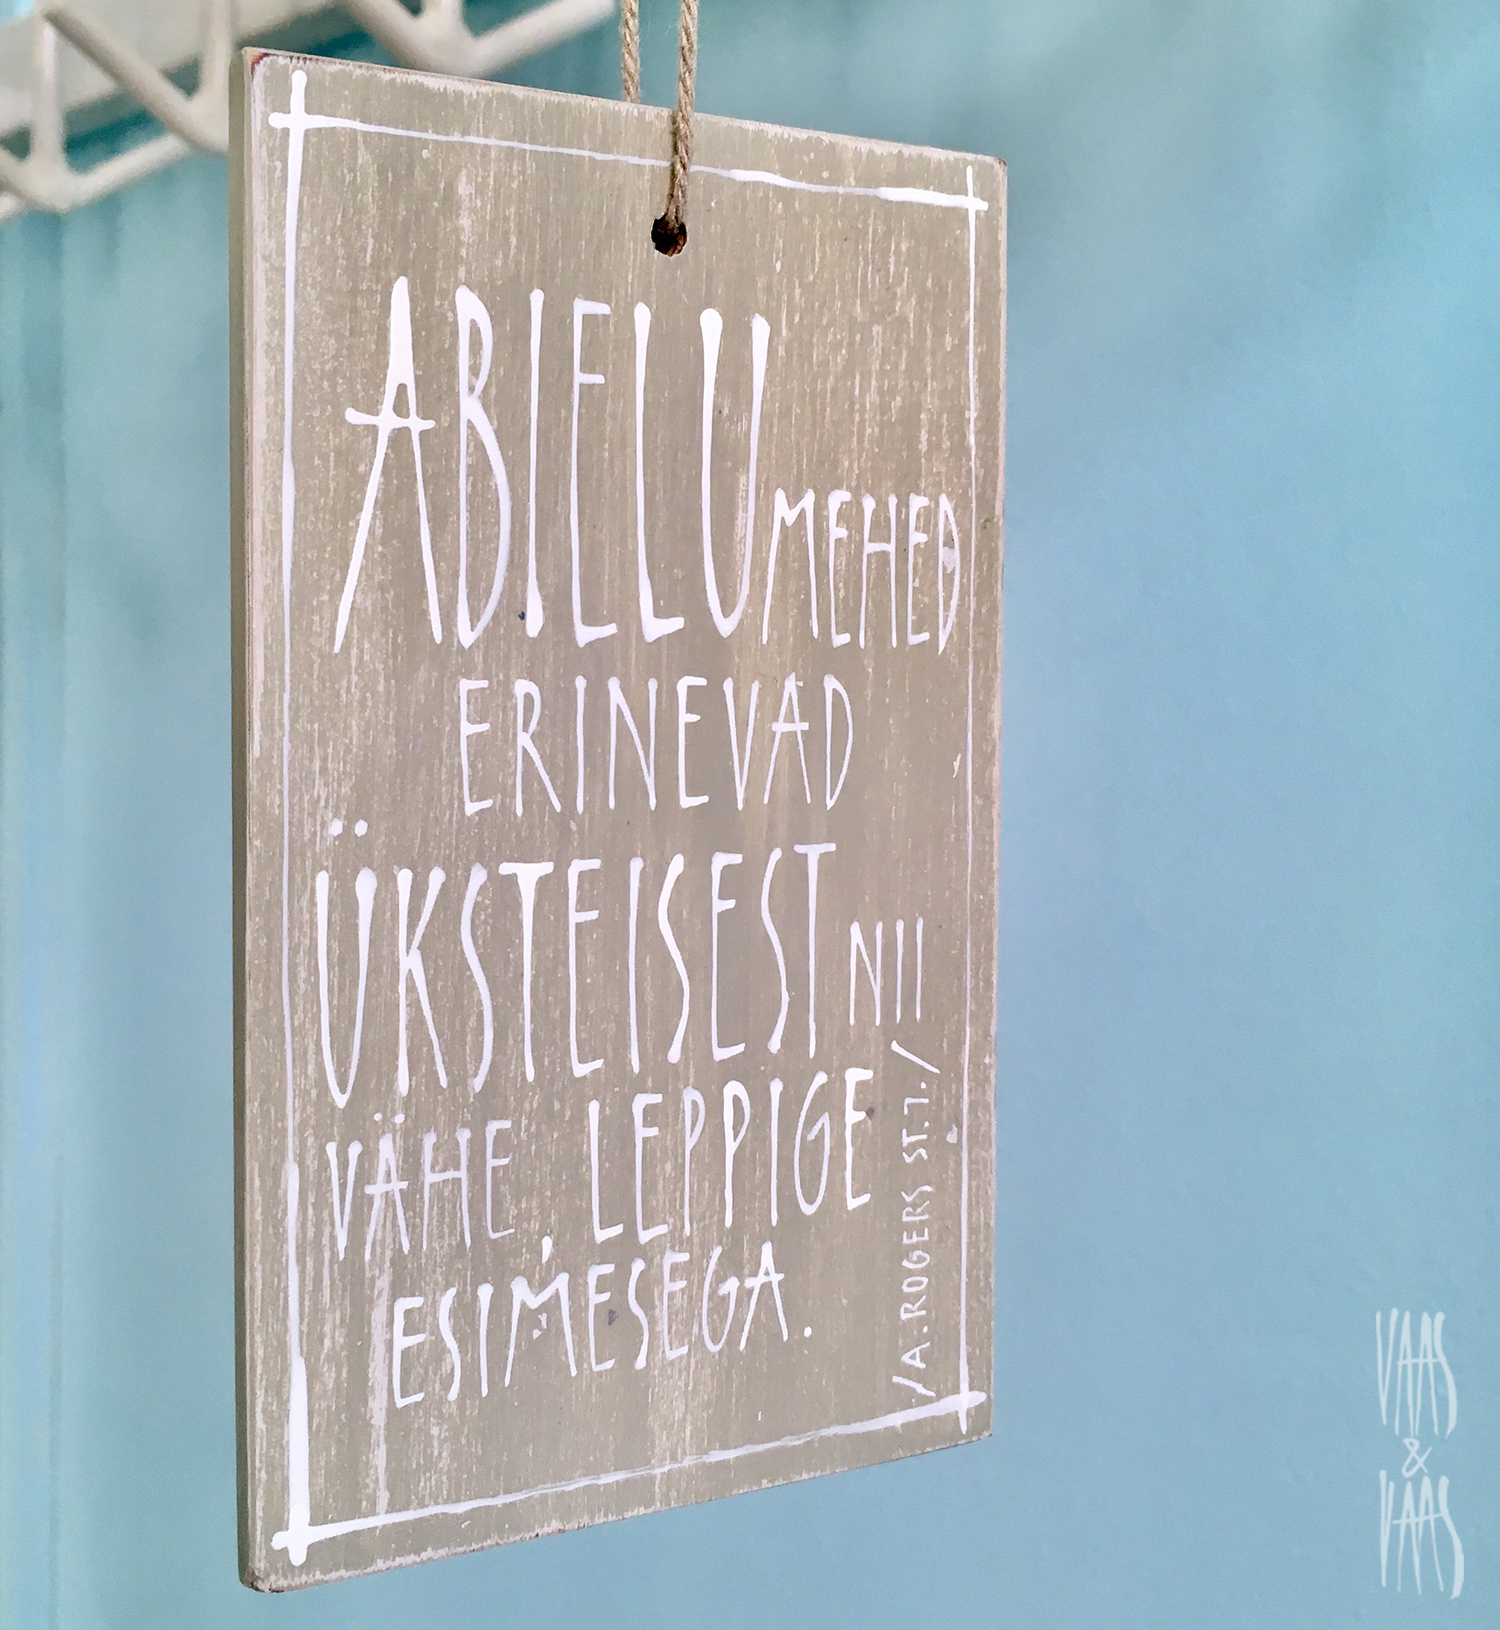 ABIELUMEHED
ERINEVAD
ÜKSTEISEST NII
VÄHE, LEPPIGE
ESIMESEGA.
/A.ROGERS ST.J./
VAAS
&
VAAS